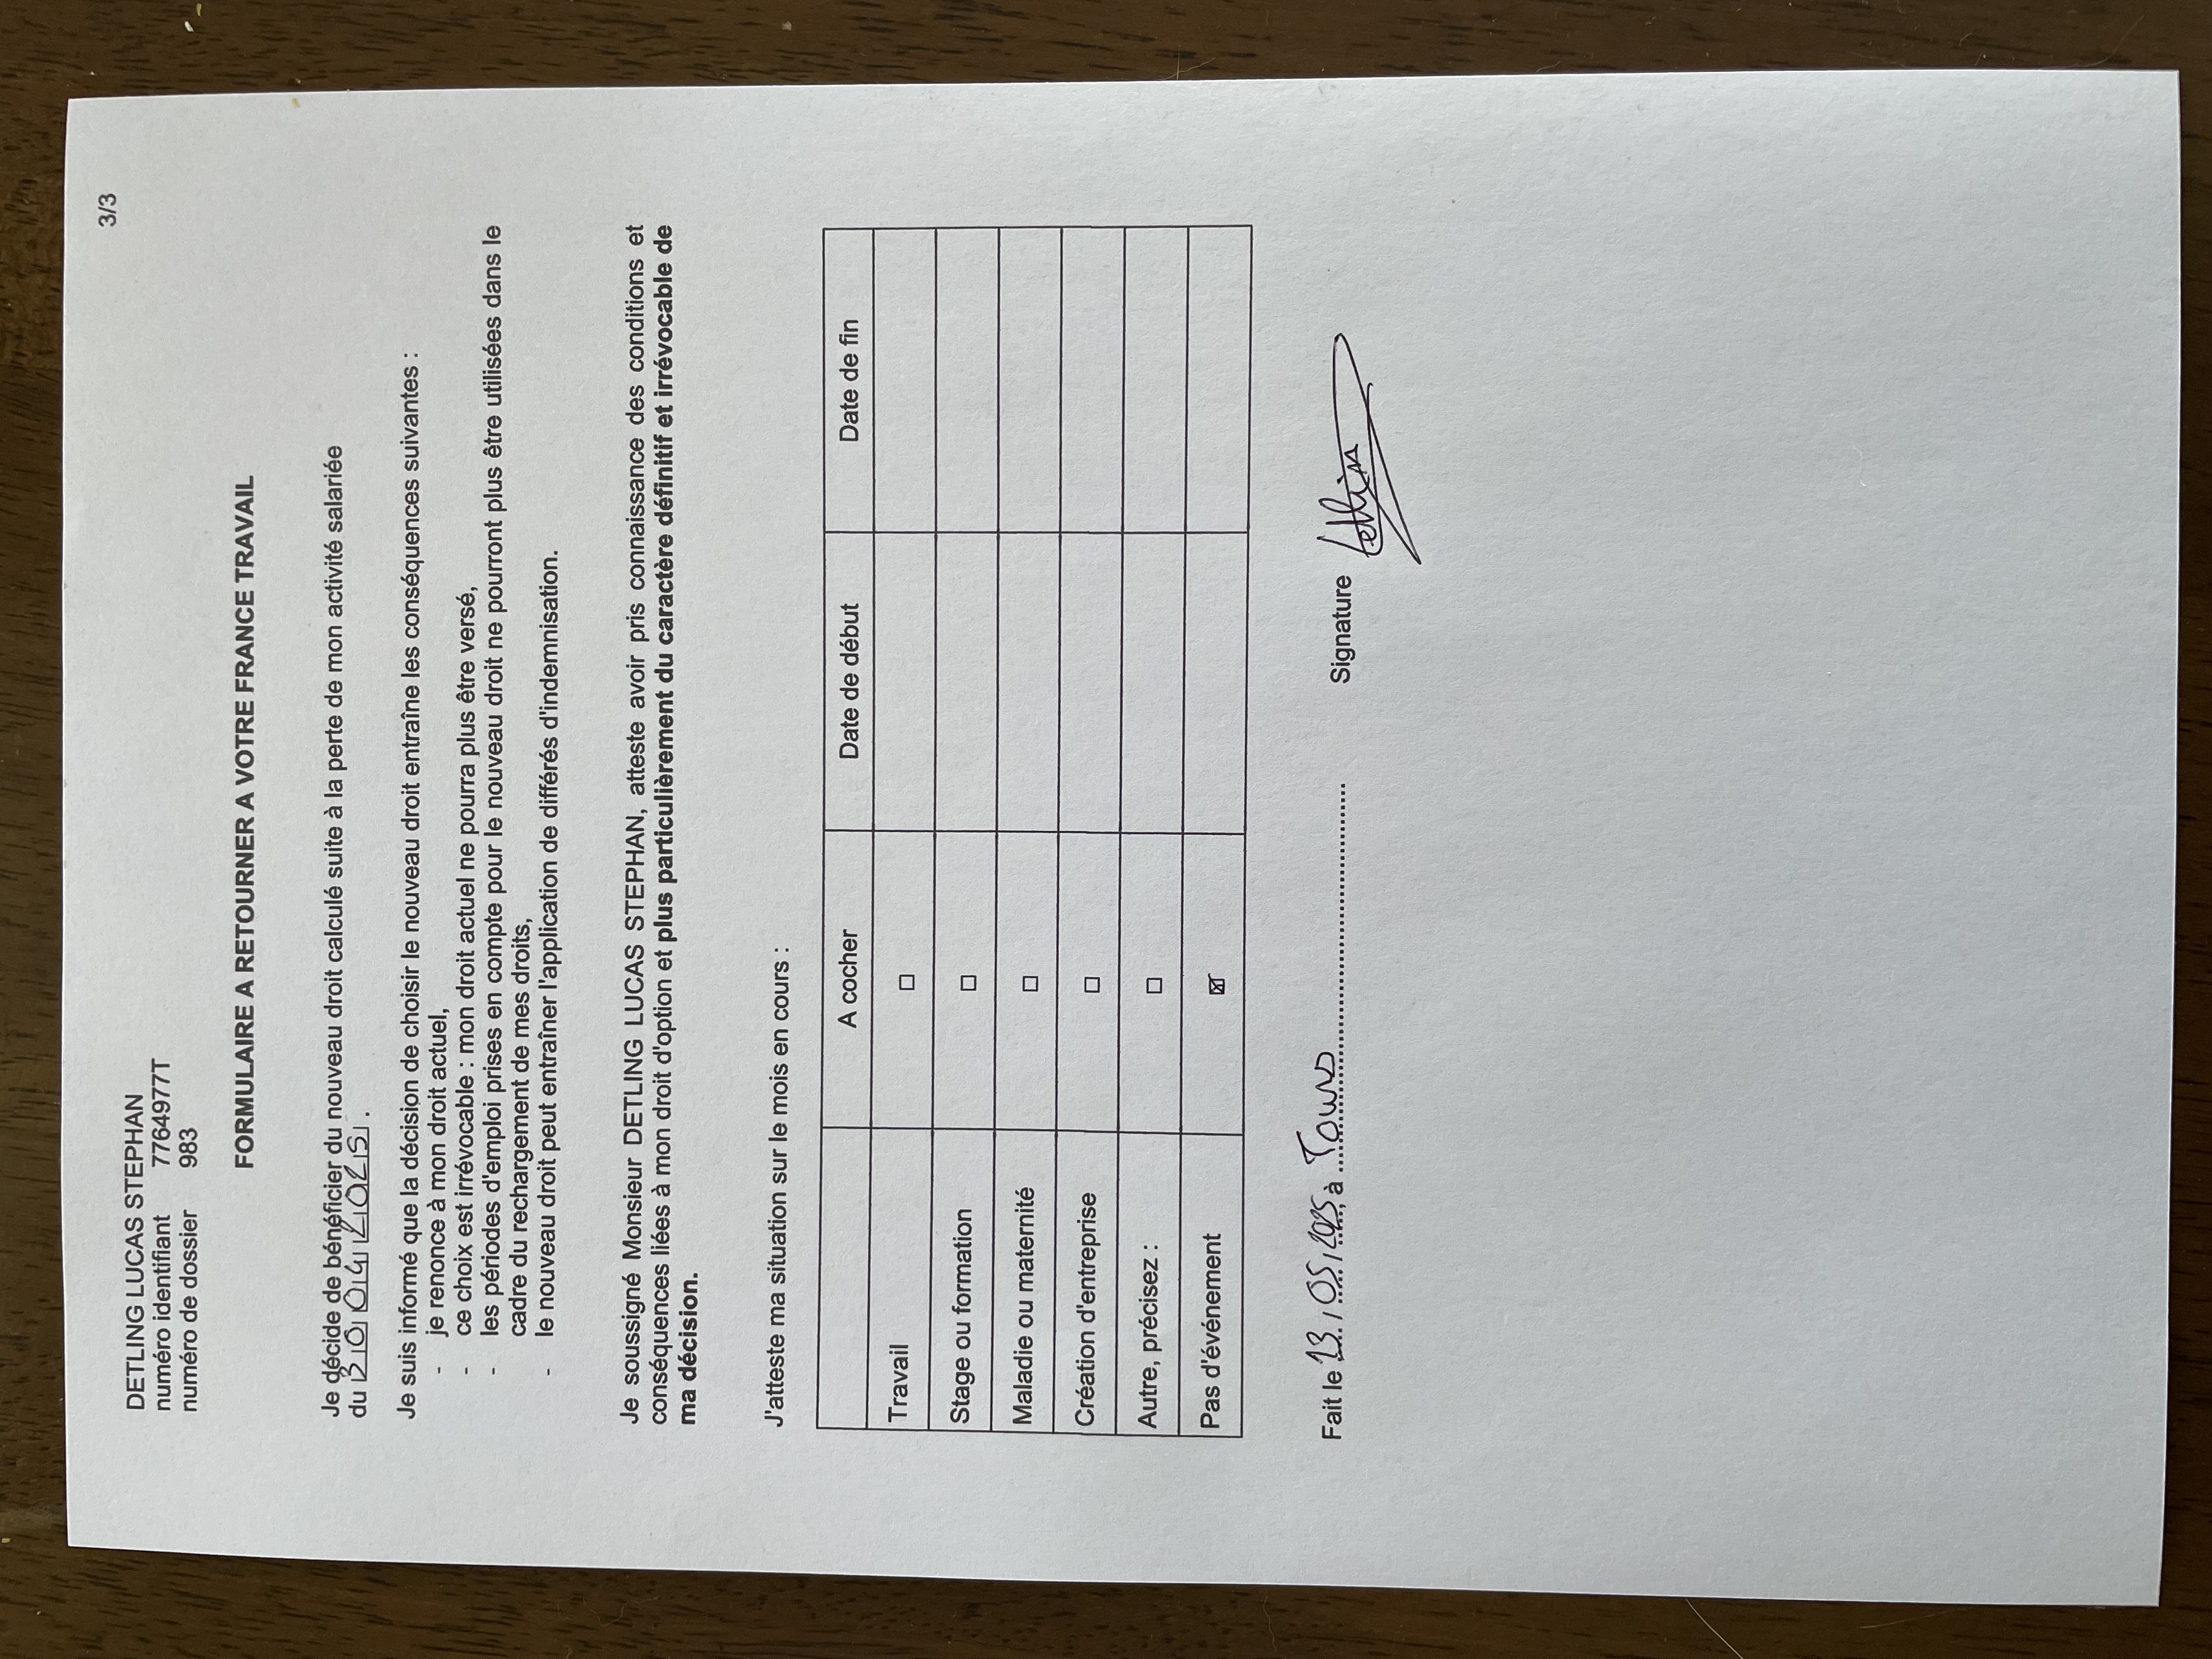 3/3
DETLING LUCAS STEPHAN
numéro identifiant 7764977T
numéro de dossier 983
FORMULAIRE A RETOURNER A VOTRE FRANCE TRAVAIL
Je décide de bénéficier du nouveau droit calculé suite à la perte de mon activité salariée
du 30 04 2025 .
Je suis informé que la décision de choisir le nouveau droit entraîne les conséquences suivantes :
- je renonce à mon droit actuel,
- ce choix est irrévocable : mon droit actuel ne pourra plus être versé,
- les périodes d'emploi prises en compte pour le nouveau droit ne pourront plus être utilisées dans le
cadre du rechargement de mes droits,
- le nouveau droit peut entraîner l'application de différés d'indemnisation.
Je soussigné Monsieur DETLING LUCAS STEPHAN, atteste avoir pris connaissance des conditions et
conséquences liées à mon droit d'option et plus particulièrement du caractère définitif et irrévocable de
ma décision.
J'atteste ma situation sur le mois en cours :
A cocher Date de début Date de fin
Travail ☐
Stage ou formation ☐
Maladie ou maternité ☐
Création d'entreprise ☐
Autre, précisez : ☐
Pas d'événement ☒
Fait le 13 / 05 / 2025, à Tours Signature